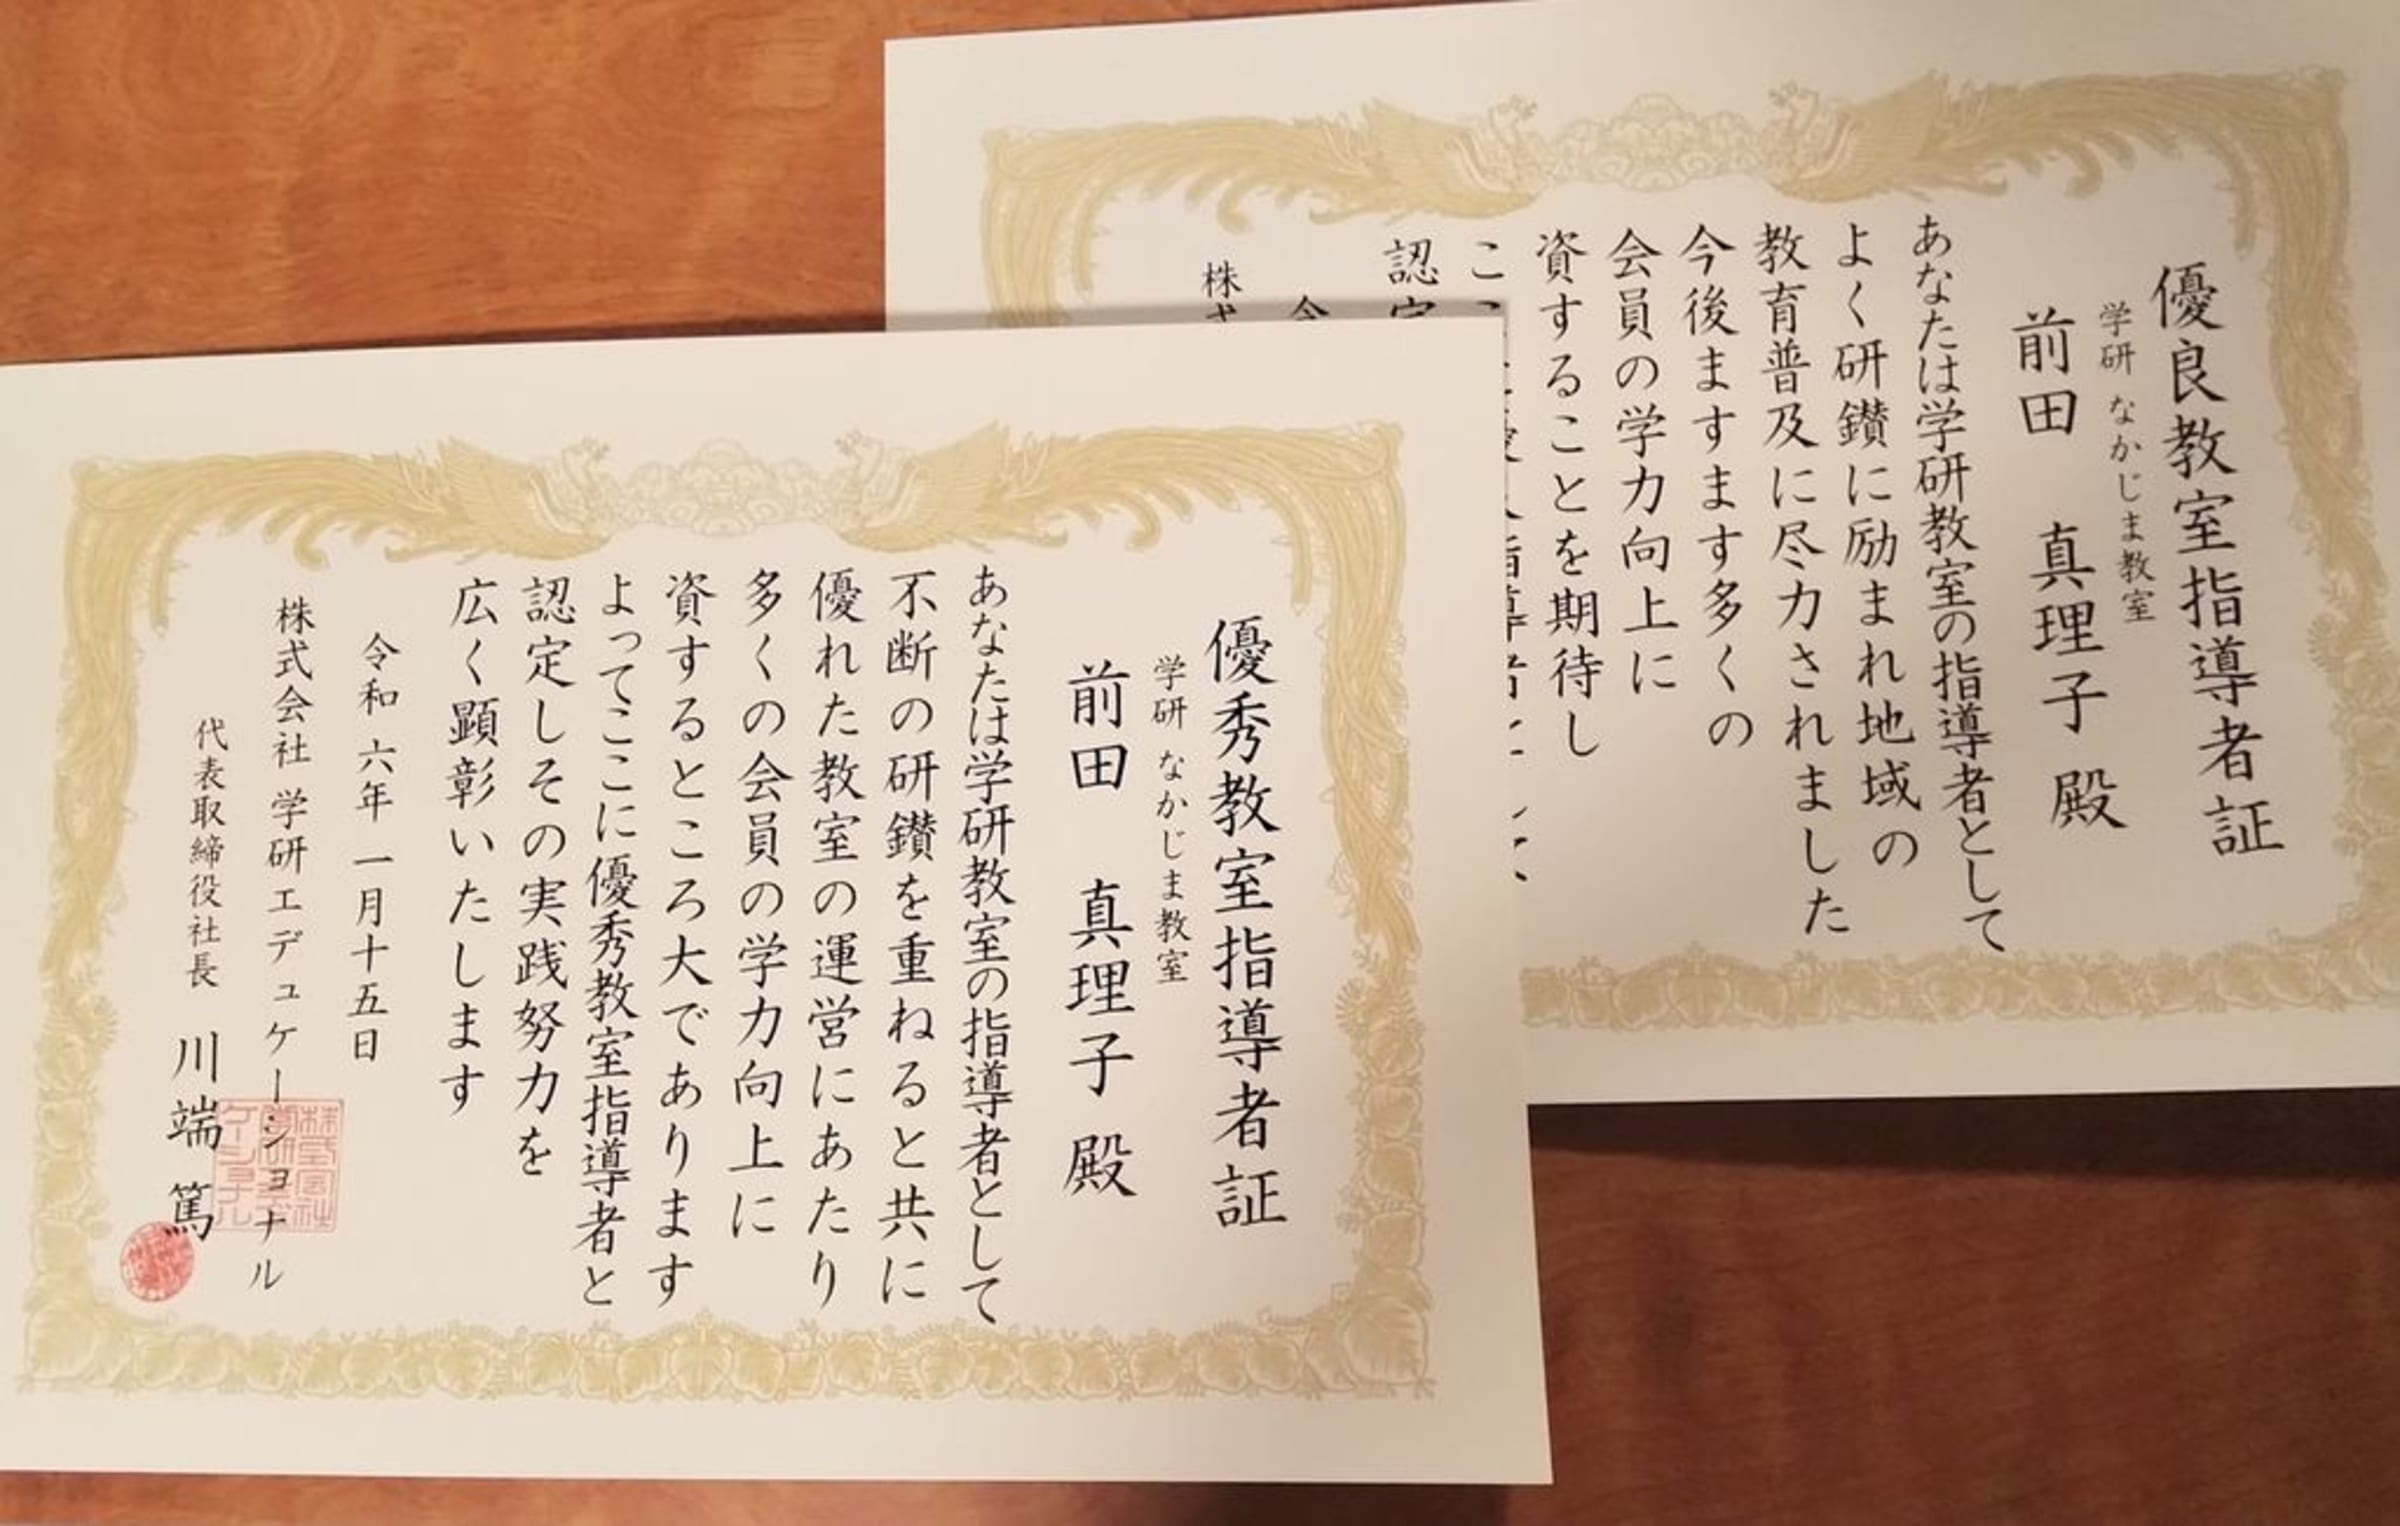 優秀教室指導者証
学研 なかじま教室
前田 真理子 殿
あなたは学研教室の指導者として
不断の研鑽を重ねると共に
優れた教室の運営にあたり
多くの会員の学力向上に
資するところ大であります
よってここに優秀教室指導者と
認定しその実践努力を
広く顕彰いたします
令和六年一月十五日
株式会社 学研エデュケーショナル
代表取締役社長 川端 篤
優良教室指導者証
学研 なかじま教室
前田 真理子 殿
あなたは学研教室の指導者として
よく研鑽に励まれ地域の
教育普及に尽力されました
今後ますます多くの
会員の学力向上に
資することを期待し
認
株